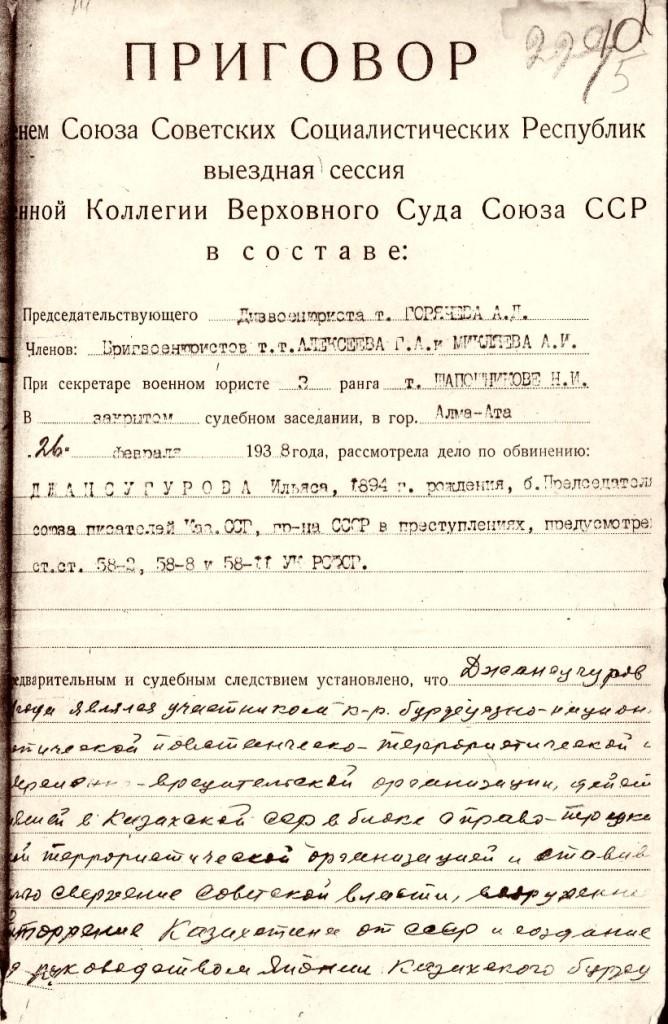 2290
5
ПРИГОВОР
нем Союза Советских Социалистических Республик
выездная сессия
нной Коллегии Верховного Суда Союза ССР
в составе:
Председательствующего Диввоенюриста т. ГОРЯЧЕВА А.Д.
Членов: Бригвоенюристов т.т.АЛЕКСЕЕВА Г.А.и МИКЛЯЕВА А.И.
При секретаре военном юристе 3 ранга т. ШАПОШНИКОВЕ Н.И.
В закрытом судебном заседании, в гор. Алма-Ата
"26" февраля 1938 года, рассмотрела дело по обвинению:
ДЖАНСУГУРОВА Ильяса, 1894 г. рождения, б.Председател
союза писателей Каз.ССР, гр-на СССР в преступлениях, предусмотре
ст.ст. 58-2, 58-8 и 58-11 УК РСФСР.
едварительным и судебным следствием установлено, что Джансугуров
года являлся участником к-р. буржуазно-национ
тической повстанческо-террористической и
-вредительской организации, дейст
в Казахской ССР в блоке с право-троцки
й террористической организацией и ставив
ю свержение советской власти, вооруженн
отторжение Казахстана от СССР и создание
руководством Японии Казахского буржу